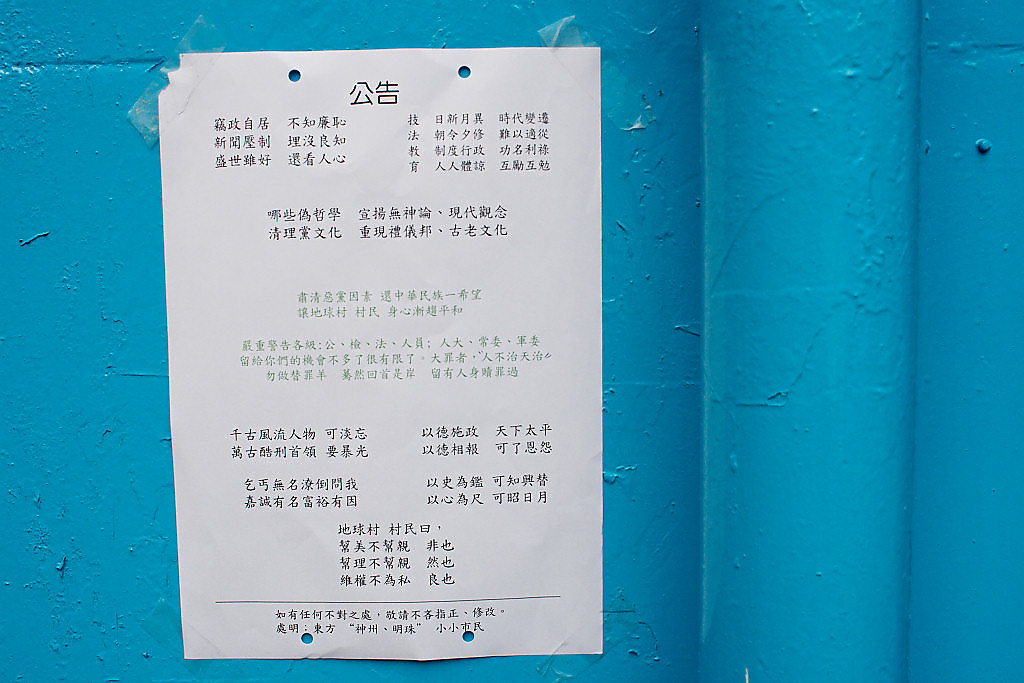 公告
竊政自居 不知廉恥
新聞壓制 埋沒良知
盛世雖好 還看人心
技 日新月異 時代變遷
法 朝令夕修 難以適從
教 制度行政 功名利祿
育 人人體諒 互勵互勉
哪些偽哲學 宣揚無神論、現代觀念
清理黨文化 重現禮儀邦、古老文化
肅清惡黨因素 還中華民族一希望
讓地球村 村民 身心漸趨平和
嚴重警告各級:公、檢、法、人員; 人大、常委、軍委
留給你們的機會不多了很有限了。大罪者,〝人不治天治〞
勿做替罪羊 驀然回首是岸 留有人身贖罪過
千古風流人物 可淡忘
萬古酷刑首領 要暴光
以德施政 天下太平
以德相報 可了恩怨
乞丐無名潦倒問我
嘉誠有名富裕有因
以史為鑑 可知興替
以心為尺 可昭日月
地球村 村民曰,
幫美不幫親 非也
幫理不幫親 然也
維權不為私 良也
如有任何不對之處,敬請不吝指正、修改。
處明:東方 “神州、明珠” 小小市民